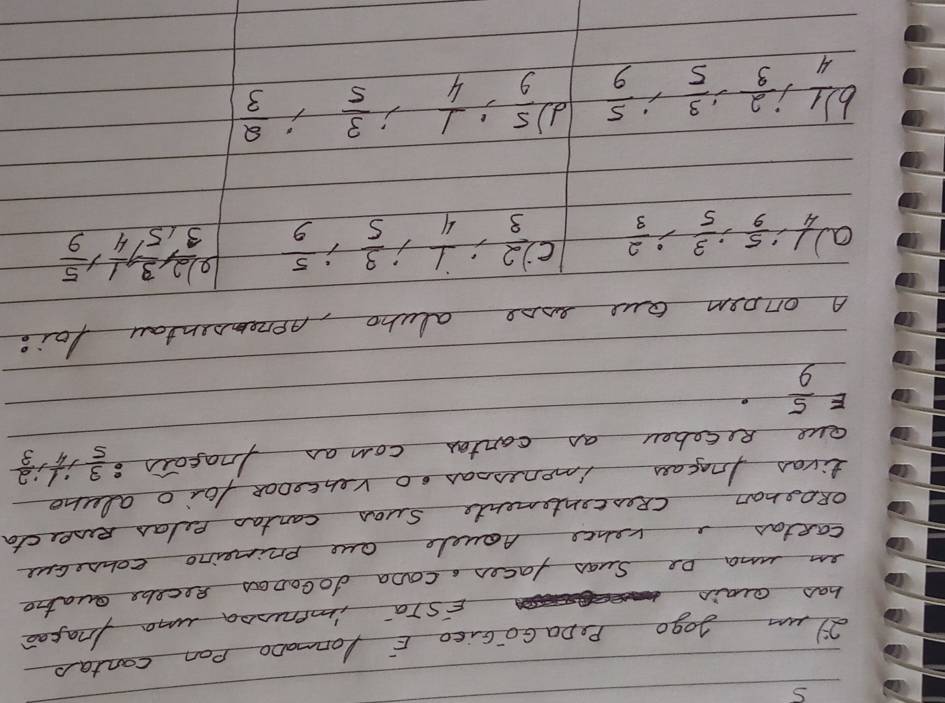 5
2) um Jogo PeDaGóGico É formaDo Por cartas
nas Quais ESTá impressa uma fração
em uma De Suas faces. caDa JoGaDor Recebe Quatro
cartas e vence AQuele Que Primeiro conseGue
ORDenar CRescentemente Suas cartas Pelas Respecta
tivas frações impressas. O venceDOR foi o aluno
Que Recebeu as cartas com as frações: 3/5; 1/4; 2/3
E 5/9.
A orDem Que esse aluno, APresentou foi:
a) 1/4; 5/9; 3/5; 2/3 c) 2/3; 1/4; 3/5; 5/9 e) 2/3, 3/5, 1/4, 5/9
b) 1/4; 2/3; 3/5; 5/9 d) 5/9; 1/4; 3/5; 2/3